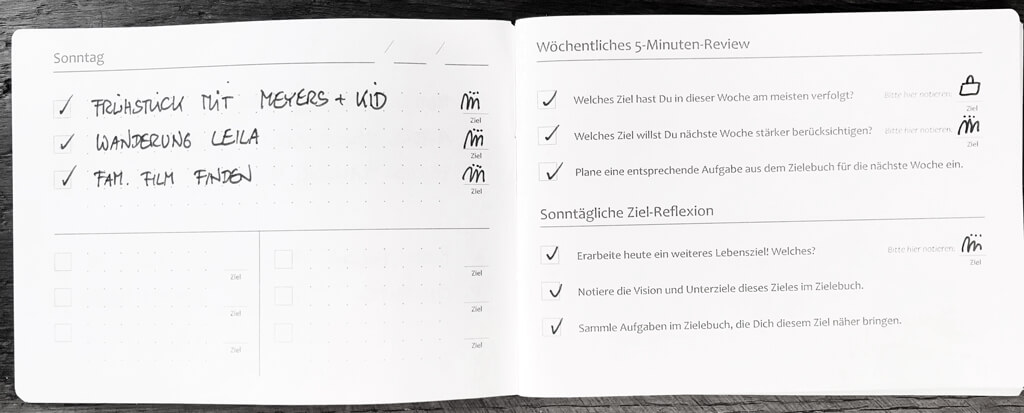 Sonntag / /
✓ FRÜHSTÜCK MIT MEYERS + KID
Ziel
✓ WANDERUNG LEILA
Ziel
✓ FAM. FILM FINDEN
Ziel
Ziel Ziel
Ziel Ziel
Ziel Ziel
Wöchentliches 5-Minuten-Review
✓ Welches Ziel hast Du in dieser Woche am meisten verfolgt? Bitte hier notieren:
Ziel
✓ Welches Ziel willst Du nächste Woche stärker berücksichtigen? Bitte hier notieren:
Ziel
✓ Plane eine entsprechende Aufgabe aus dem Zielebuch für die nächste Woche ein.
Sonntägliche Ziel-Reflexion
✓ Erarbeite heute ein weiteres Lebensziel! Welches? Bitte hier notieren:
Ziel
✓ Notiere die Vision und Unterziele dieses Zieles im Zielebuch.
✓ Sammle Aufgaben im Zielebuch, die Dich diesem Ziel näher bringen.